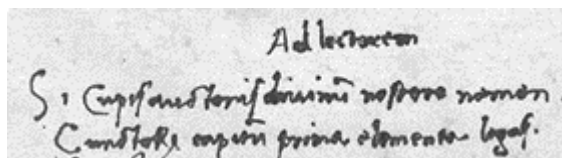 Ad lectorem
Si Cupis auctoris divinum noscere nomen
Cunctorum capitum prima elementa legas.